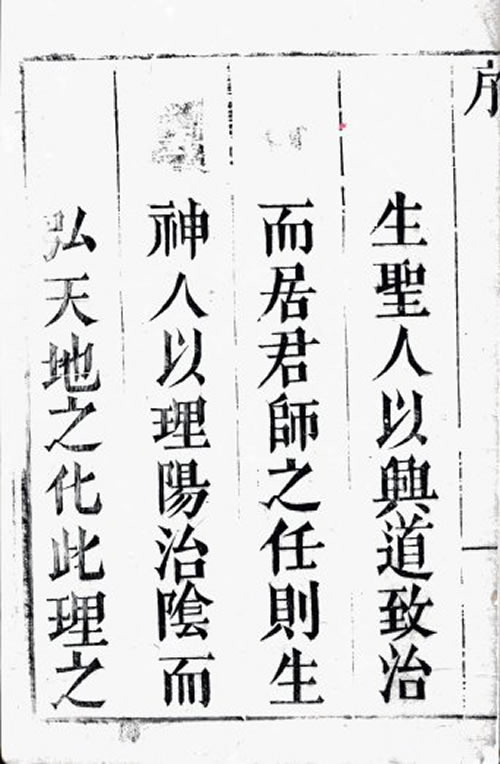 序
生聖人以興道致治
而居君師之任則生
神人以理陽治陰而
弘天地之化此理之